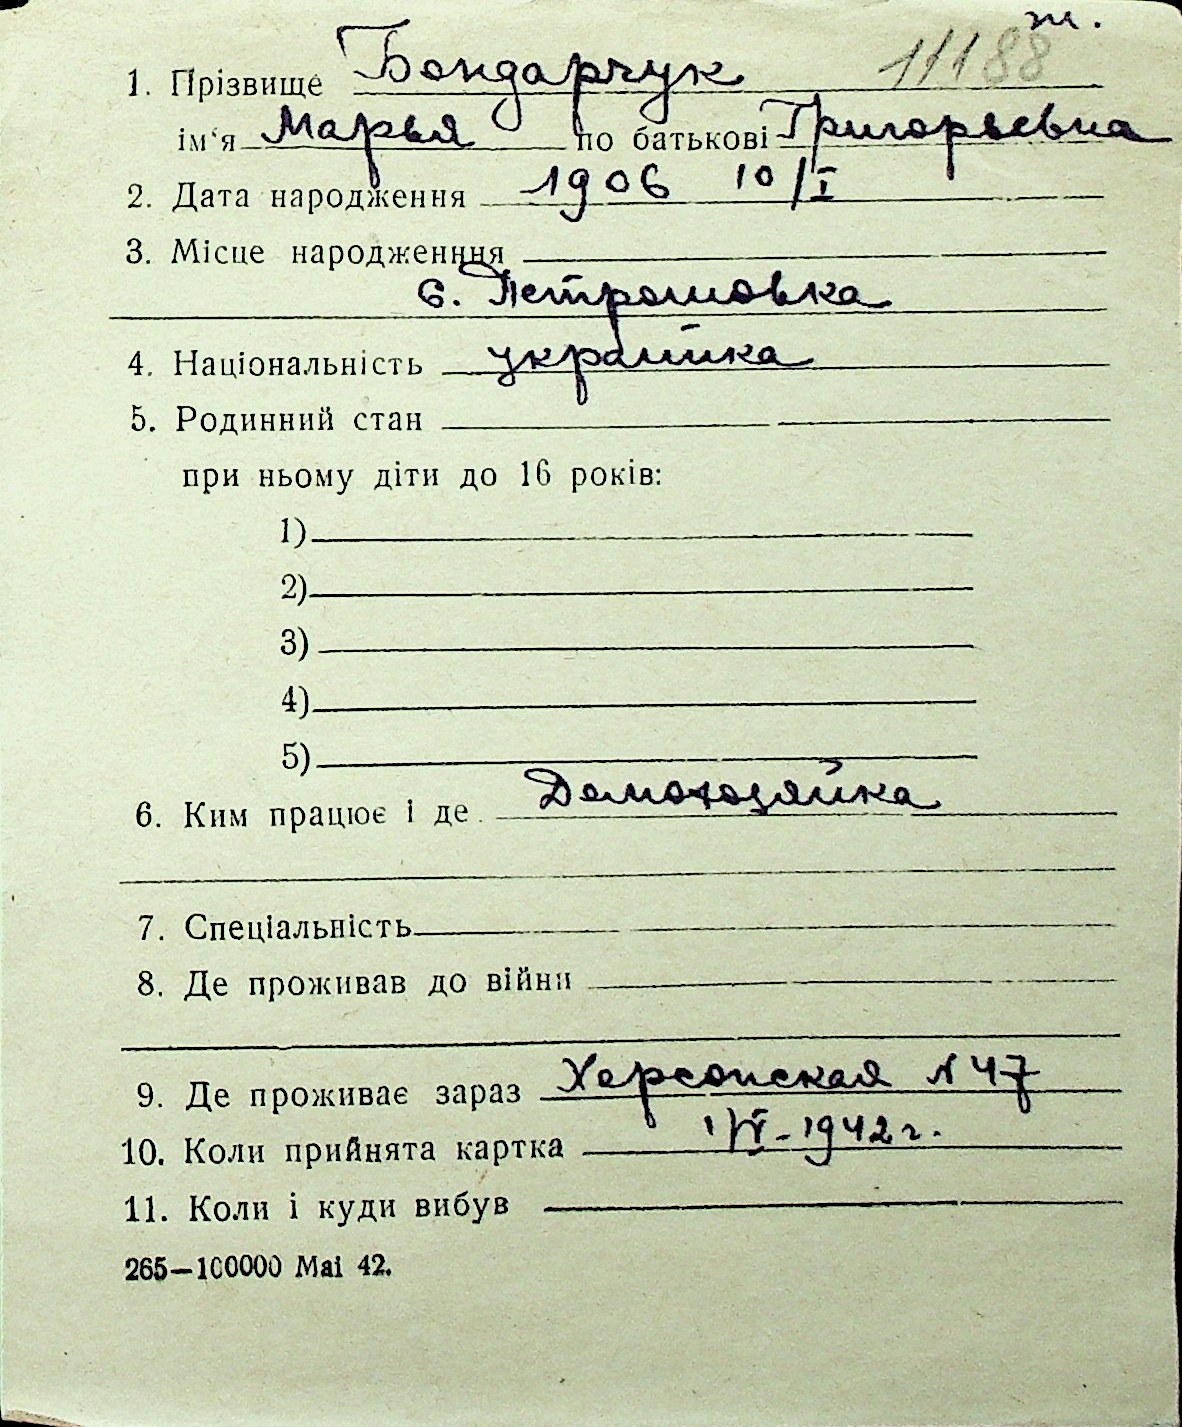 ж.
11188
1. Прізвище Бондарчук
ім‘я Марья по батькові Григорьевна
2. Дата народження 1906 10/I
3. Місце народженння
с. Петрашовка
4. Національність украінка
5. Родинний стан
при ньому діти до 16 років:
1)
2)
3)
4)
5)
6. Ким працює і де Домохозяйка
7. Спеціальність
8. Де проживав до війни
9. Де проживає зараз Херсонская № 47
10. Коли прийнята картка 1/VI-1942 г.
11. Коли і куди вибув
265—100000 Mai 42.